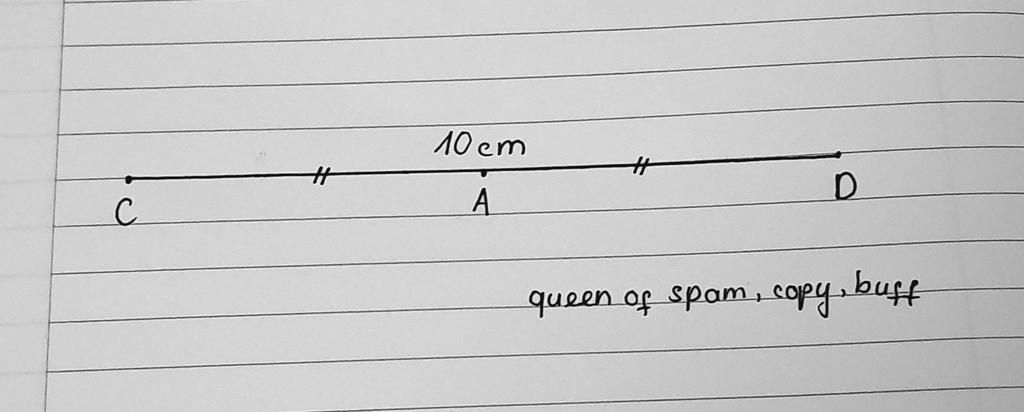 10cm
C A D
queen of spam, copy, buff